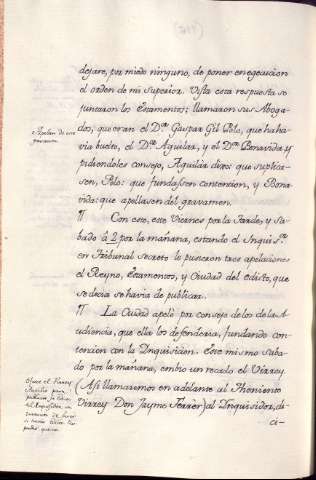 dejare, por miedo ninguno, de poner en egecucion
el orden de mi superior. Vista esta respuesta se
juntaron los Estamentos; llamaron sus Aboga-
dos, que eran el D.or Gaspar Gil Polo, que ha ha-
via buelto, el D.or Aguilar, y el D.or Banavida: y
pidiendoles consejo, Aguilar dixo: que suplica-
sen, Polo: que fundassen contencion, y Bona-
vida: que apellasen del gravamen.
¶ Con esto, este Viernes por la Tarde, y Sa-
bado à 2 por la mañana, estando el Inquis.or
en Tribunal Secreto le pusieron tres apelaciones
el Reyno, Estamentos, y Ciudad del edicto, que
se decia se havia de publicar.
¶ La Ciudad apelò por consejo de los de la Au-
diencia, que ella los defenderia, fundando con-
tencion con la Inquisicion. Este mismo Saba-
do por la mañana, embio un recado el Virrey
(Assi llamaremos en adelante al Theniente
Virrey Don Jayme Ferrèr) al Inquisidor, di-
ci-
Apelan de esta
Ofrece el Virrey